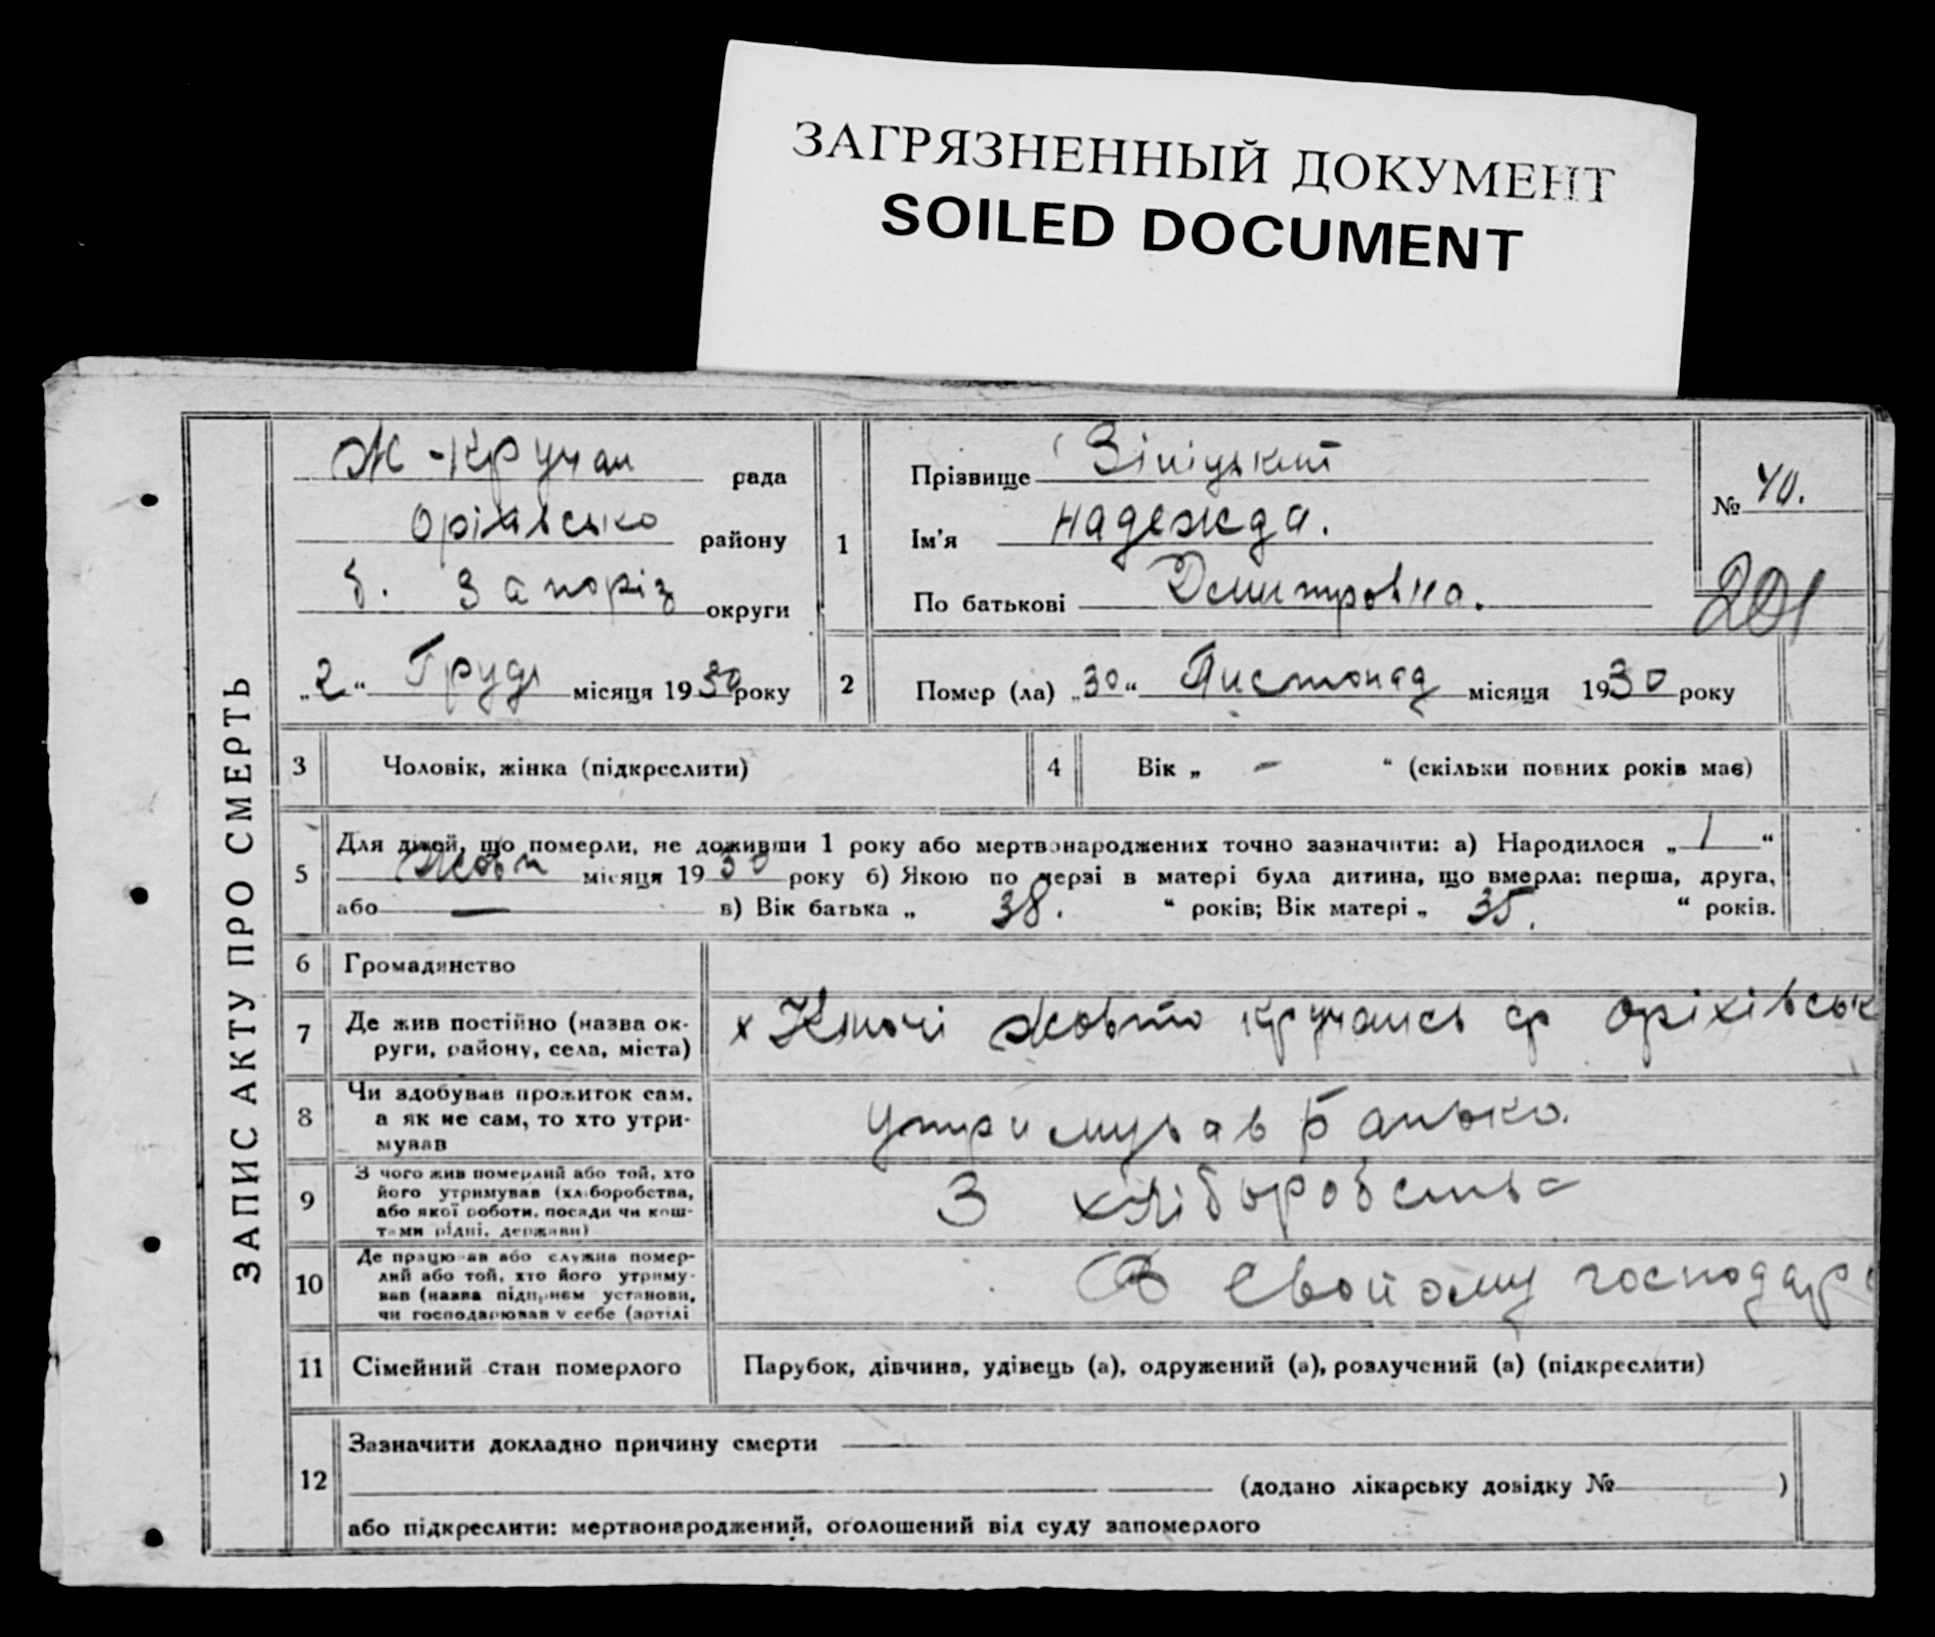 ЗАГРЯЗНЕННЫЙ ДОКУМЕНТ
SOILED DOCUMENT
ЗАПИС АКТУ ПРО СМЕРТЬ
Ж-Кручан рада
Оріхівсько району
б. Запоріз округи
„2“ Груд місяця 1930 року
1
Прізвище
Ім'я Надежда.
По батькові Дмитровна.
№ 40.
201
2
Помер (ла) „30“ Листопад місяця 1930 року
3 Чоловік, жінка (підкреслити)
4 Вік „ - “ (скільки повних років має)
5 Для дітей, що померли, не доживши 1 року або мертвонароджених точно зазначити: а) Народилося „1“
Жовт місяця 1930 року б) Якою по черзі в матері була дитина, що вмерла: перша, друга,
або — в) Вік батька „ 38. “ років; Вік матері „ 35. “ років.
6 Громадянство
7 Де жив постійно (назва ок-
руги, району, села, міста)
х Ключі Жовто кручанськ Оріхівськ
8 Чи здобував прожиток сам,
а як не сам, то хто утри-
мував
утримував Батько.
9 З чого жив померлий або той, хто
його утримував (хліборобства,
або якої роботи, посади чи кош-
тами рідні, держави)
З хліборобства
10 Де працював або служив помер-
лий або той, хто його утриму-
вав (назва підприєм установи,
чи господарював у себе (артілі
В свойому господар
11 Сімейний стан померлого
Парубок, дівчина, удівець (а), одружений (а), розлучений (а) (підкреслити)
12 Зазначити докладно причину смерти
(додано лікарську довідку № )
або підкреслити: мертвонароджений, оголошений від суду запомерлого